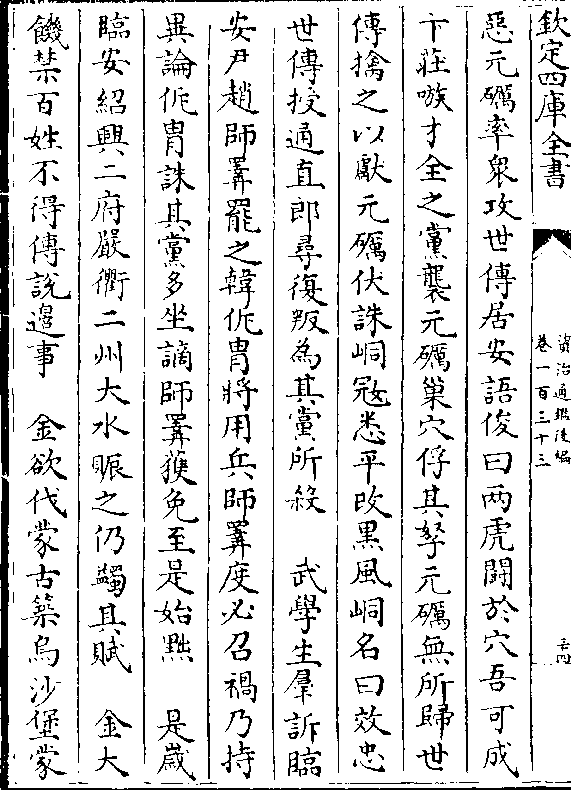 欽定四庫全書
資治通鑑後編
卷一百三十三
惡元礪率衆攻世傳居安語俊曰两虎鬬於穴吾可成
卞莊嗾才全之黨襲元礪巢穴俘其孥元礪無所歸世
傳擒之以獻元礪伏誅峒冦悉平改黒風峒名曰效忠
世傳授通直郎尋復叛為其黨所殺　武學生羣訴臨
安尹趙師𢍰罷之韓侂胄將用兵師𢍰度必召禍乃持
異論侂胄誅其黨多坐謫師𢍰獲免至是始黜　是歳
臨安紹興二府嚴衢二州大水賑之仍蠲其賦　金大
饑禁百姓不得傳說邉事　金欲伐蒙古築烏沙堡蒙